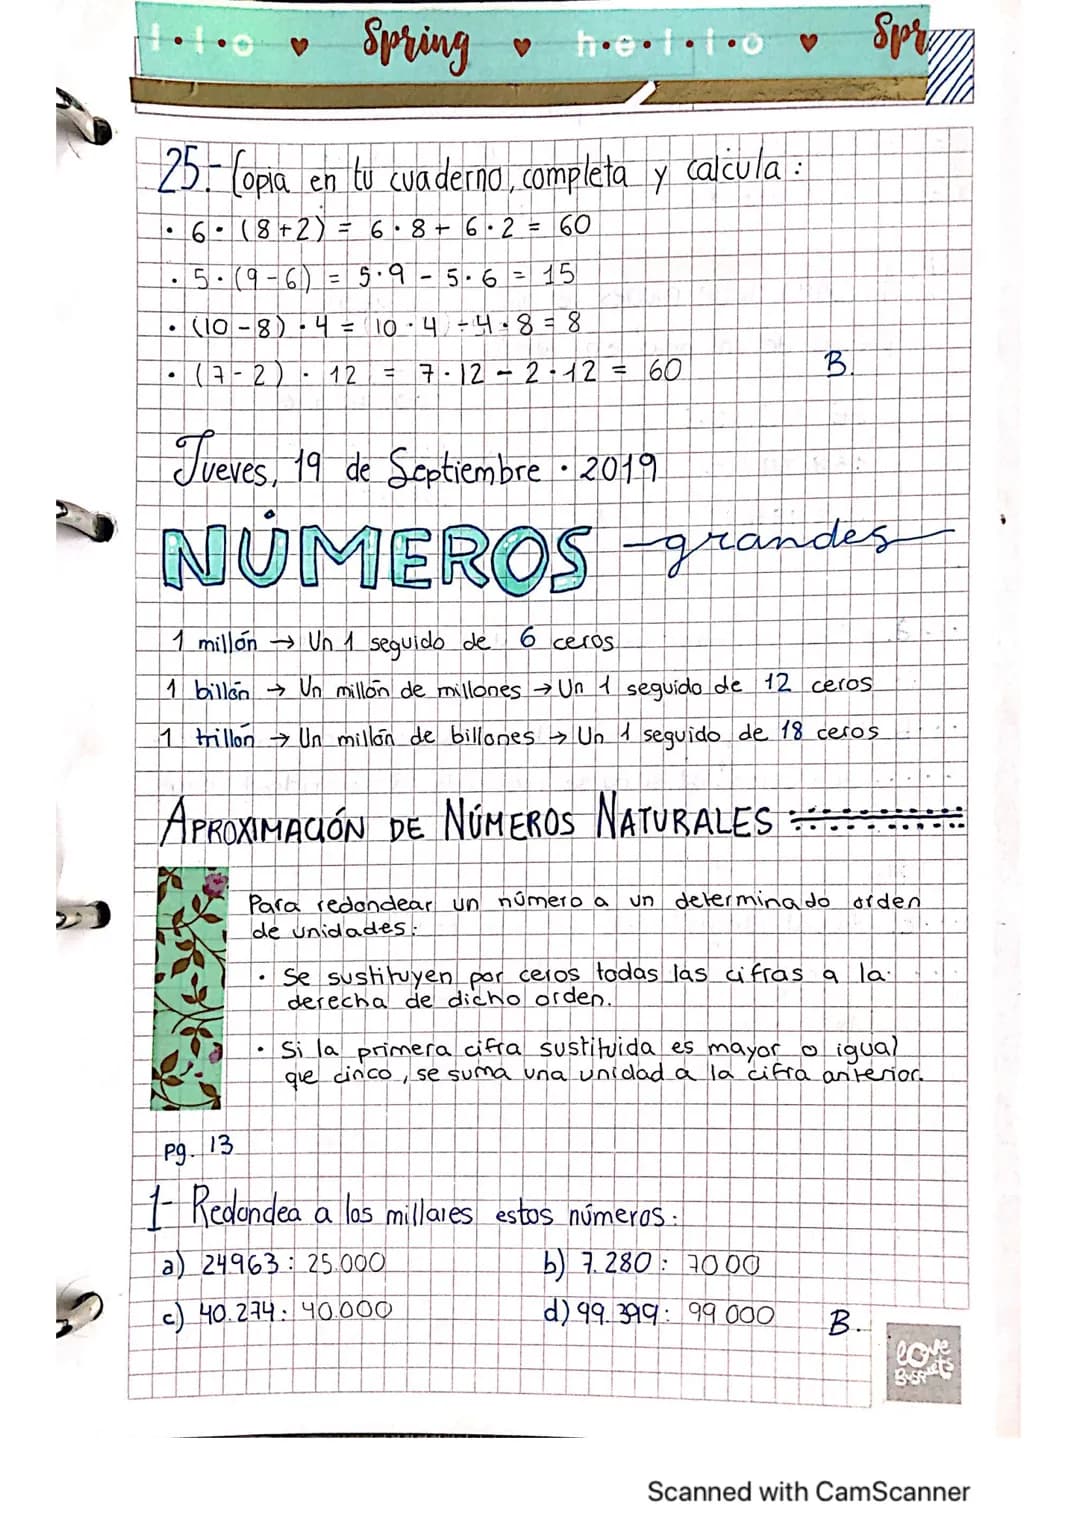 l·l·o ♥ Spring ♥ h·e·l·l·o ♥ Spr
25.- Copia en tu cuaderno, completa y calcula:
· 6 · (8+2) = 6 · 8 + 6 · 2 = 60
· 5 · (9-6) = 5·9 - 5·6 = 15
· (10-8) · 4 = 10 · 4 - 4 · 8 = 8
· (7-2) · 12 = 7·12 - 2·12 = 60 B.
Jueves, 19 de Septiembre · 2019
NÚMEROS grandes
1 millón → Un 1 seguido de 6 ceros
1 billón → Un millón de millones → Un 1 seguido de 12 ceros
1 trillón → Un millón de billones → Un 1 seguido de 18 ceros
APROXIMACIÓN DE NÚMEROS NATURALES
Para redondear un número a un determinado orden
de unidades:
· Se sustituyen por ceros todas las cifras a la
derecha de dicho orden.
· Si la primera cifra sustituida es mayor o igual
que cinco, se suma una unidad a la cifra anterior.
pg. 13
1- Redondea a los millares estos números:
a) 24963: 25.000 b) 7.280: 7000
c) 40.274: 40.000 d) 99.399: 99 000 B.
love
Scanned with CamScanner